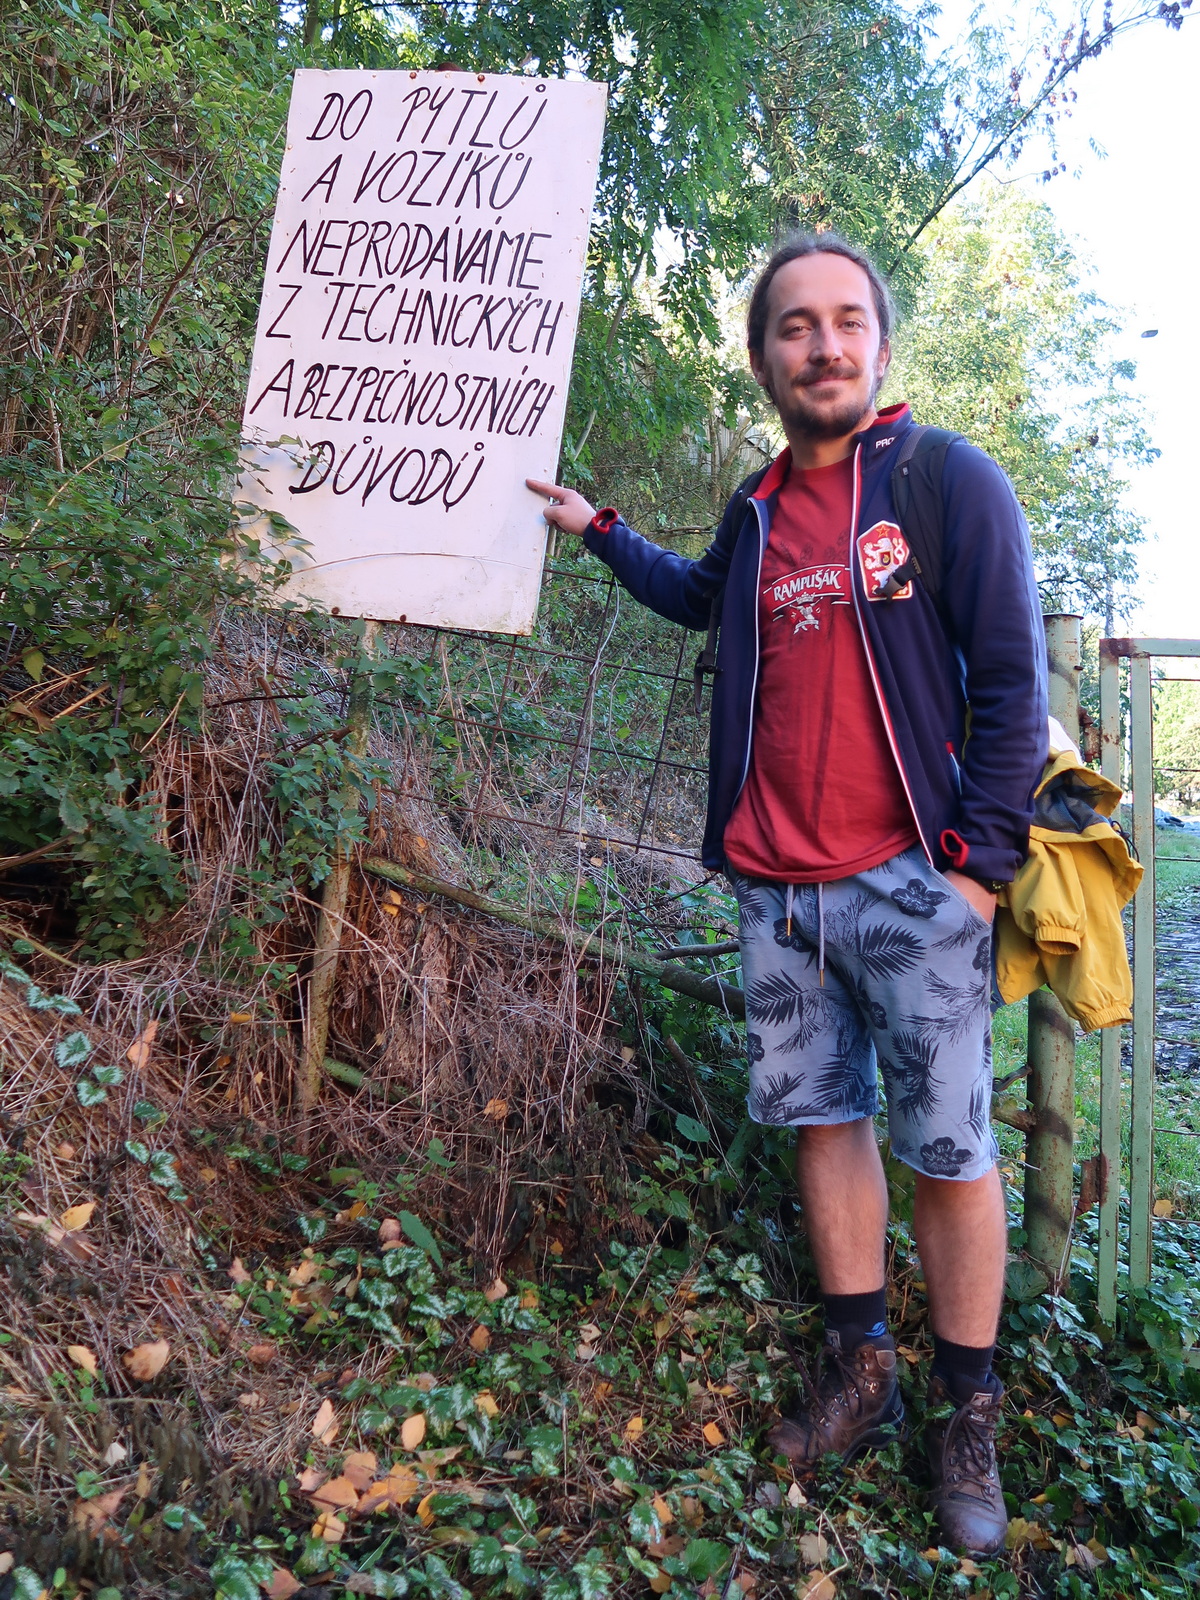 DO PYTLŮ
A VOZÍKŮ
NEPRODÁVÁME
Z TECHNICKÝCH
A BEZPEČNOSTNÍCH
DŮVODŮ
RAMPUŠÁK